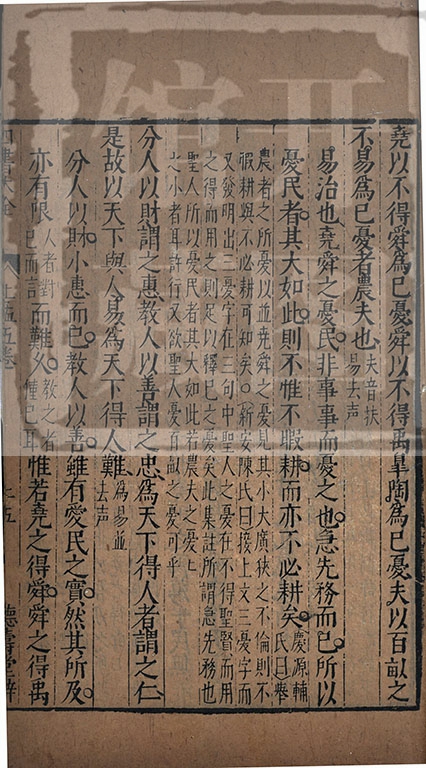 堯以不得舜為己憂舜以不得禹皋陶為己憂夫以百畝之
不易為己憂者農夫也夫音扶易去聲
易治也堯舜之憂民非事事而憂之也急先務而已所以
憂民者其大如此則不惟不暇耕而亦不必耕矣慶源輔氏曰舉
農者之所憂以並堯舜之憂見其小大廣狹之不倫則不
暇耕與不必耕可知矣○新安陳氏曰接上文三憂字而
又發明出三憂字在三句中聖人之憂在不得聖賢而用
之得而用之則足以釋己之憂矣此集註所謂急先務也
聖人所以憂民者其大如此若農夫之憂上
之小者耳許行又欲聖人憂百畝之憂可乎
分人以財謂之惠教人以善謂之忠為天下得人者謂之仁
是故以天下與人易為天下得人難為易並去聲
分人以財小惠而已教人以善雖有愛民之實然其所及
亦有限而難久惟若堯之得舜舜之得禹
四書大全